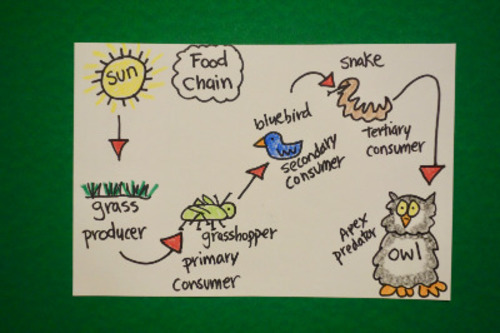 sun
Food
Chain
grass
producer
grasshopper
primary
consumer
bluebird
secondary
consumer
snake
tertiary
consumer
Apex
predator
owl